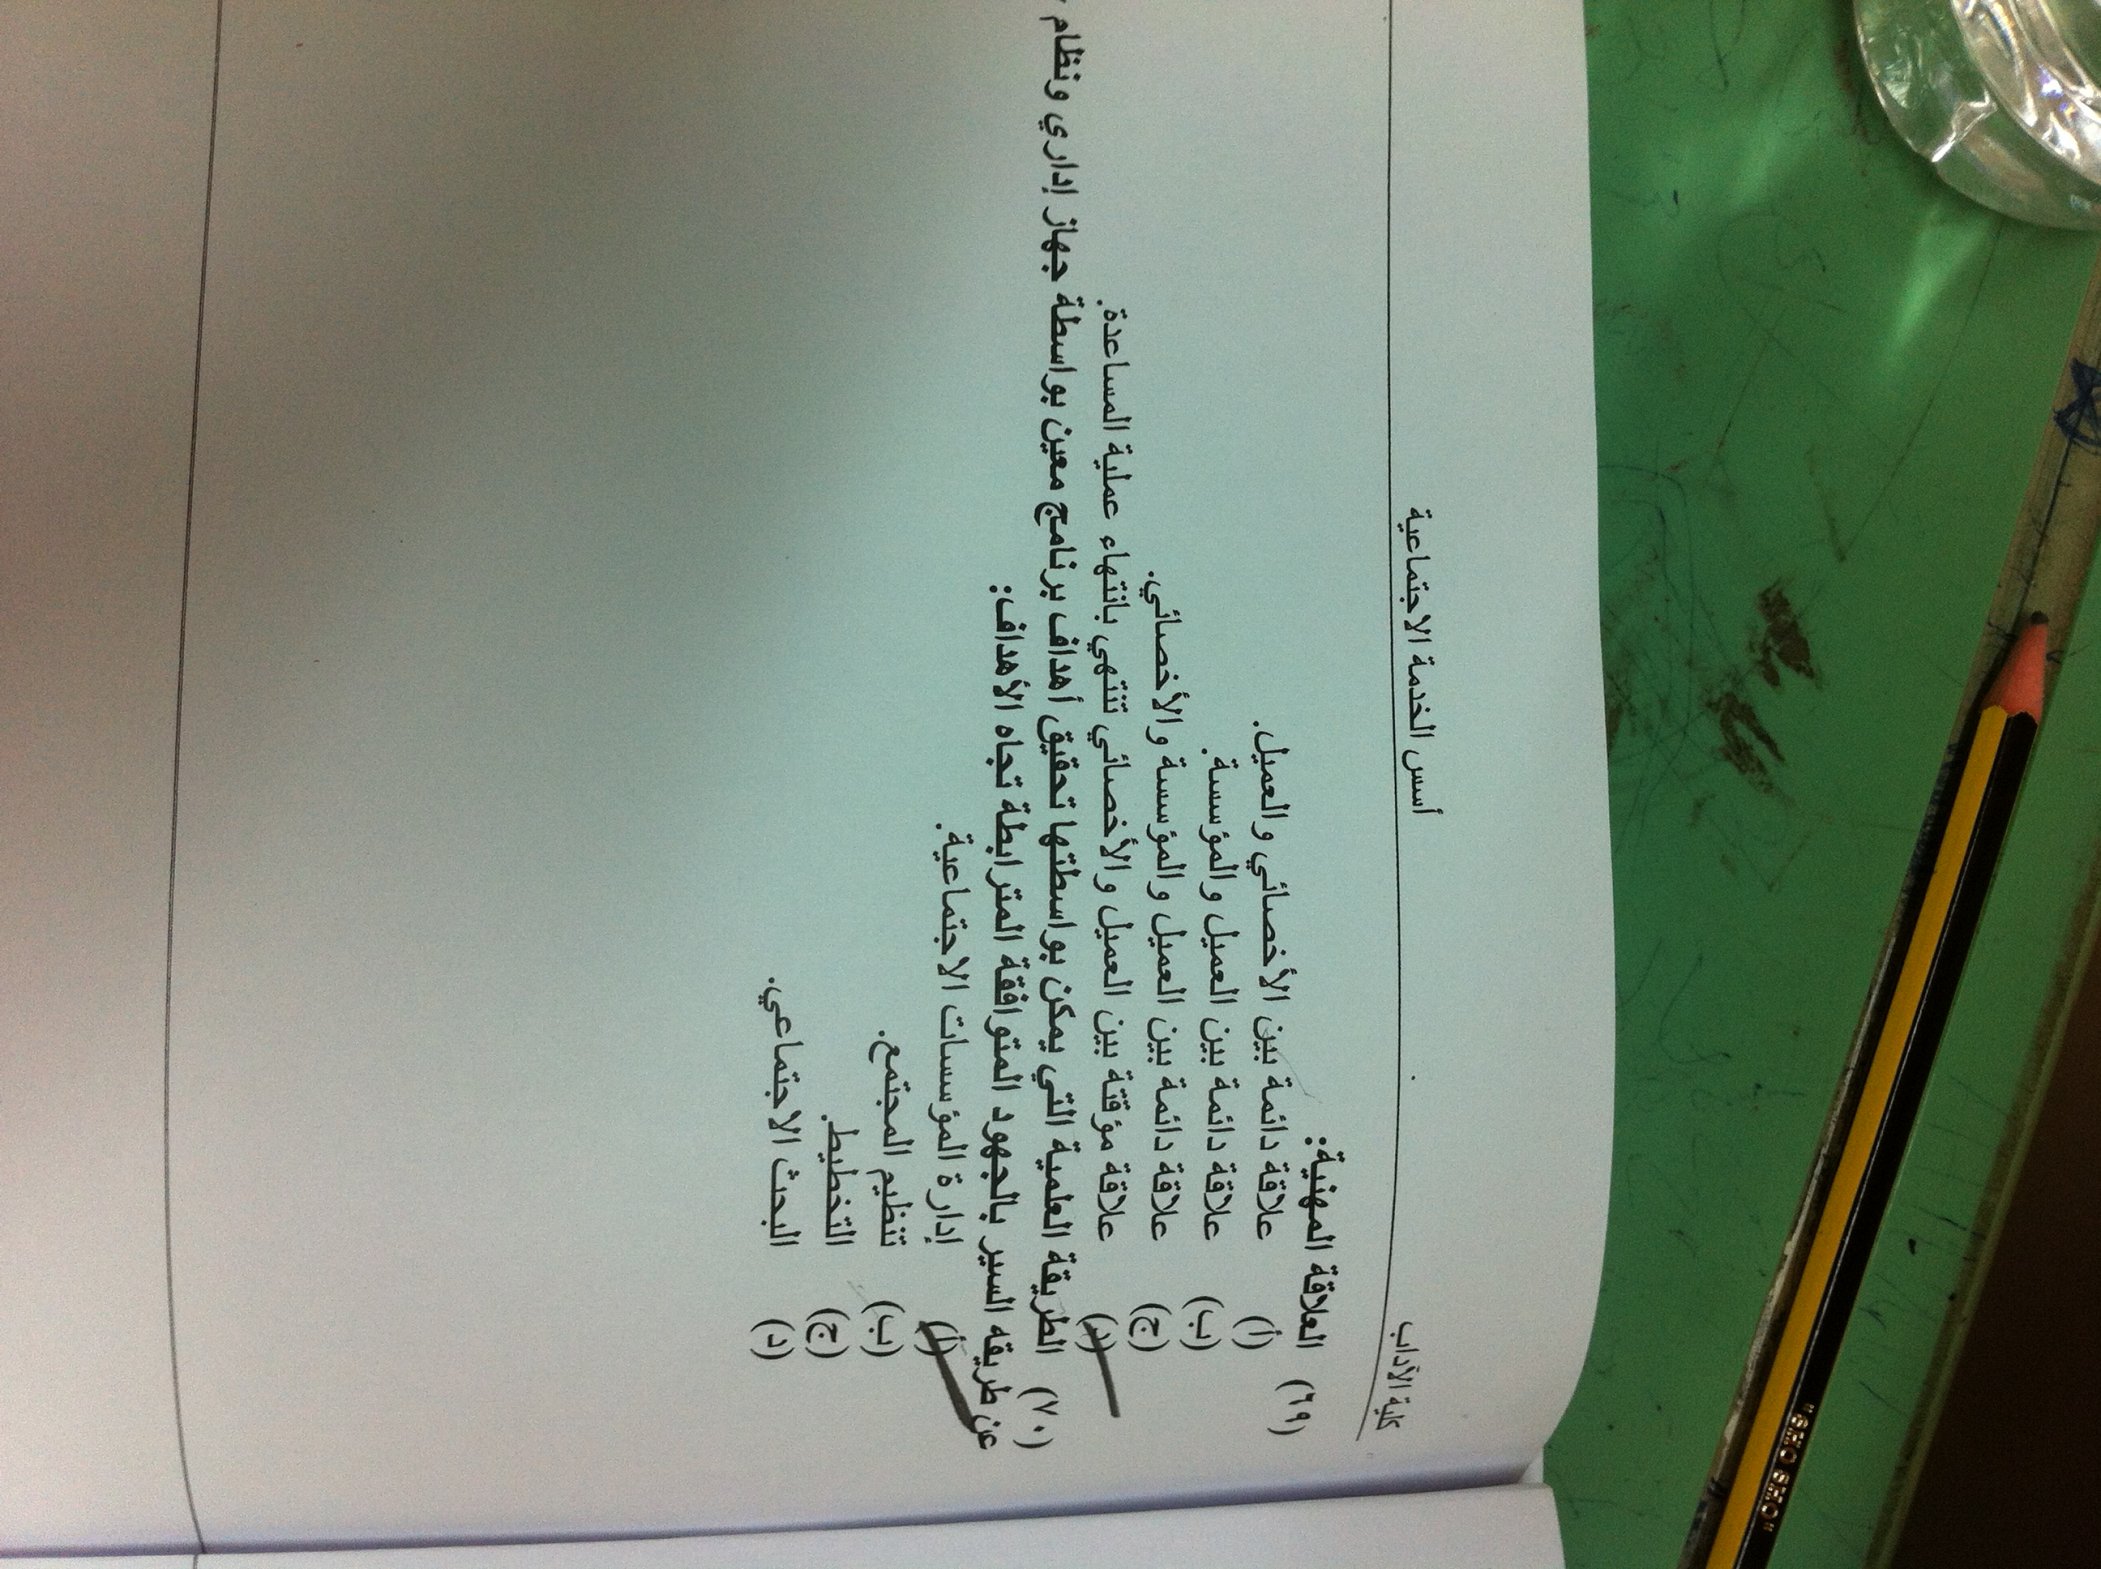 كلية الآداب
أسس الخدمة الاجتماعية
(٦٩) العلاقة المهنية:
(أ) علاقة دائمة بين الأخصائي والعميل.
(ب) علاقة دائمة بين العميل والمؤسسة.
(ج) علاقة دائمة بين العميل والمؤسسة والأخصائي.
(د) علاقة مؤقتة بين العميل والأخصائي تنتهي بانتهاء عملية المساعدة.
(٧٠) الطريقة العلمية التي يمكن بواسطتها تحقيق أهداف برنامج معين بواسطة جهاز إداري ونظام
عن طريقه السير بالجهود المتوافقة المترابطة تجاه الأهداف:
(أ) إدارة المؤسسات الاجتماعية.
(ب) تنظيم المجتمع.
(ج) التخطيط.
(د) البحث الاجتماعي.